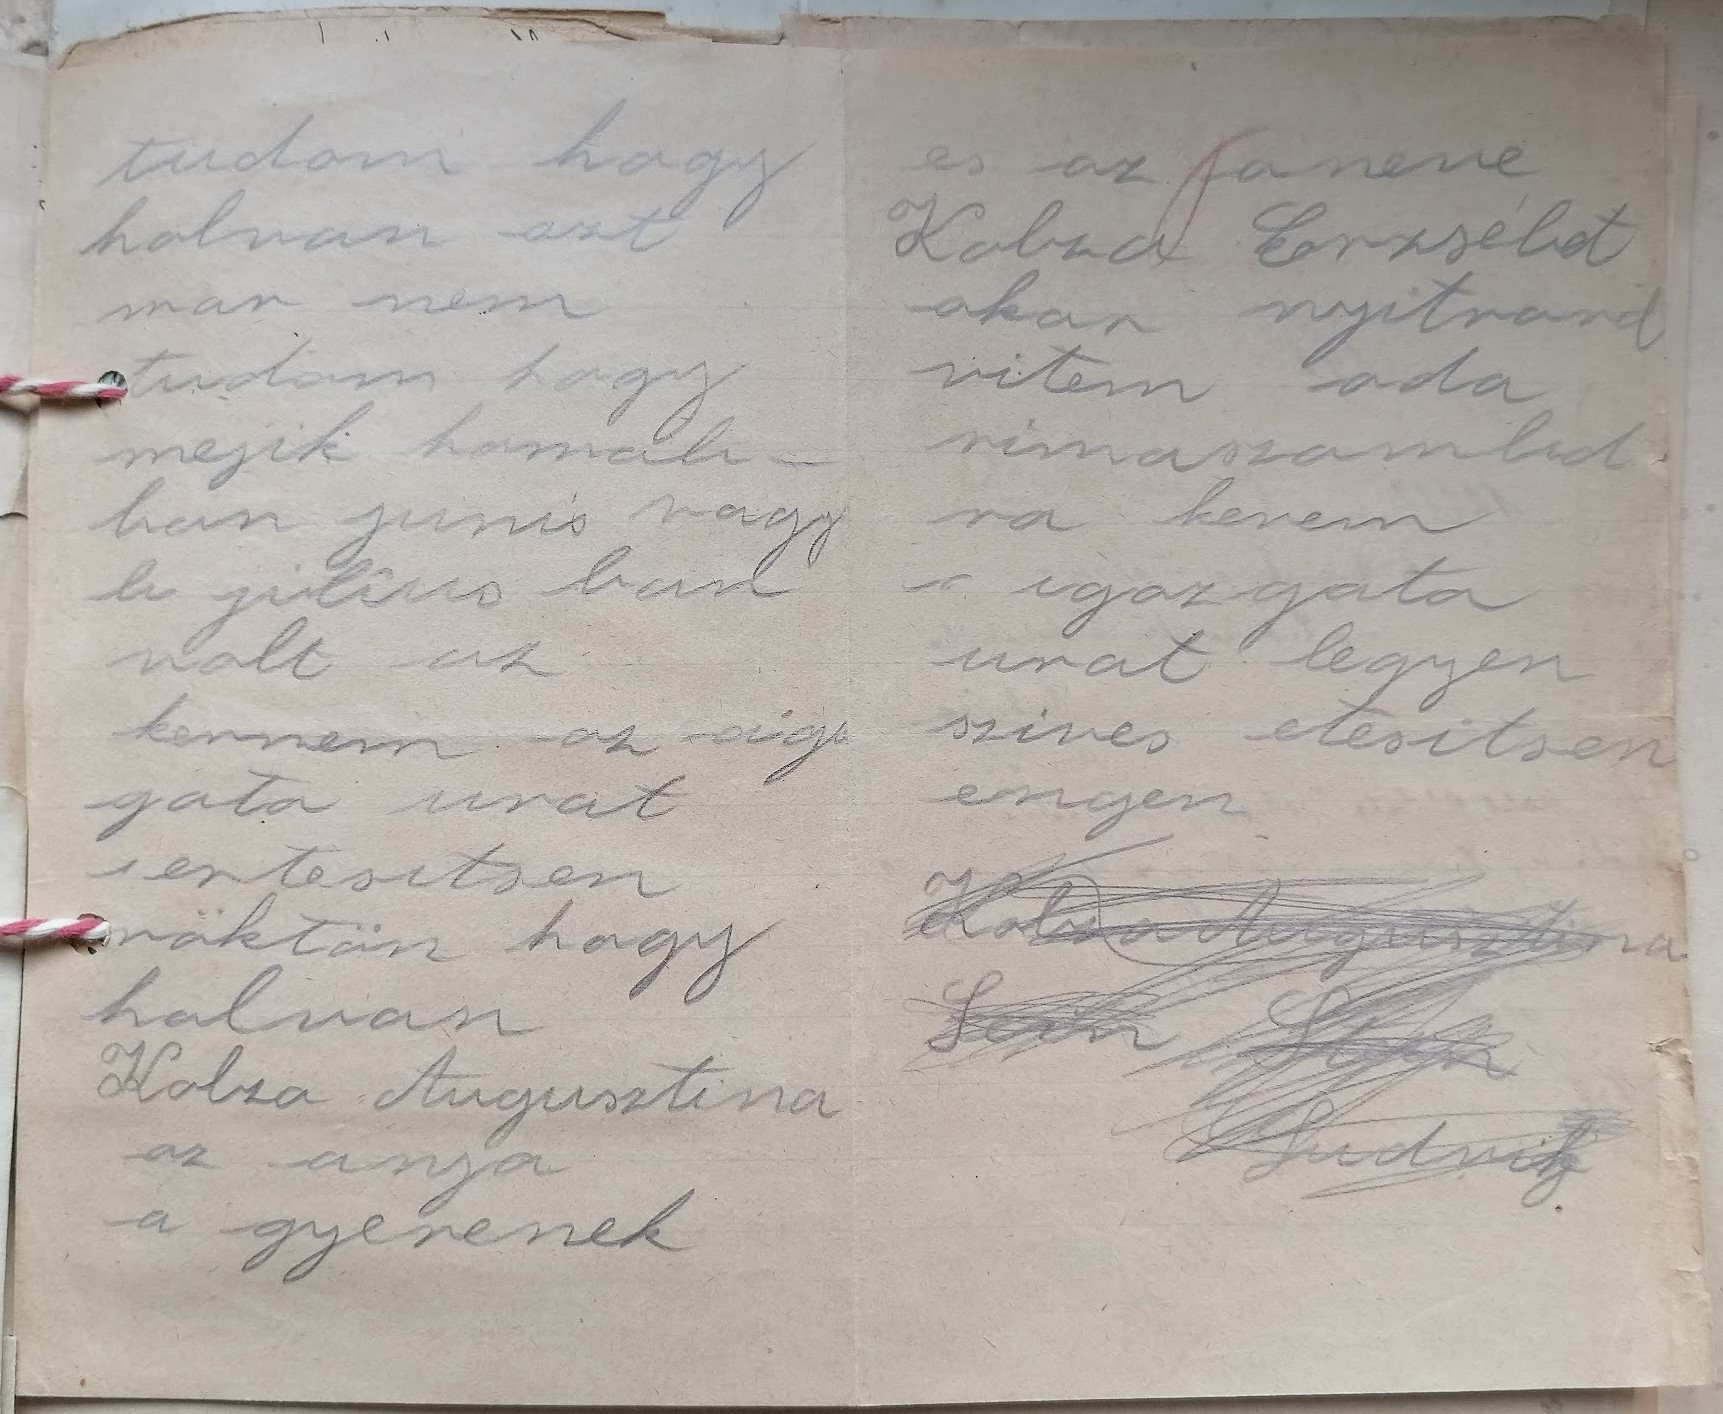 tudom hogy
holvan azt
mar nem
tudom hogy
mejik honnab-
ban junis vagy
b julius ban
volt az
kernem az aig
gata urat
ertesitsen
röktön hogy
holvan
Kobza Augusztina
az anya
a gyerenek
es az aneve
Kobza Erzsébet
akar nyitrard
vitem oda
rimaszombd
ra kerem
a igazgata
urat legyen
szives etesitsen
engen
Kobza Augusztina
Ludvik